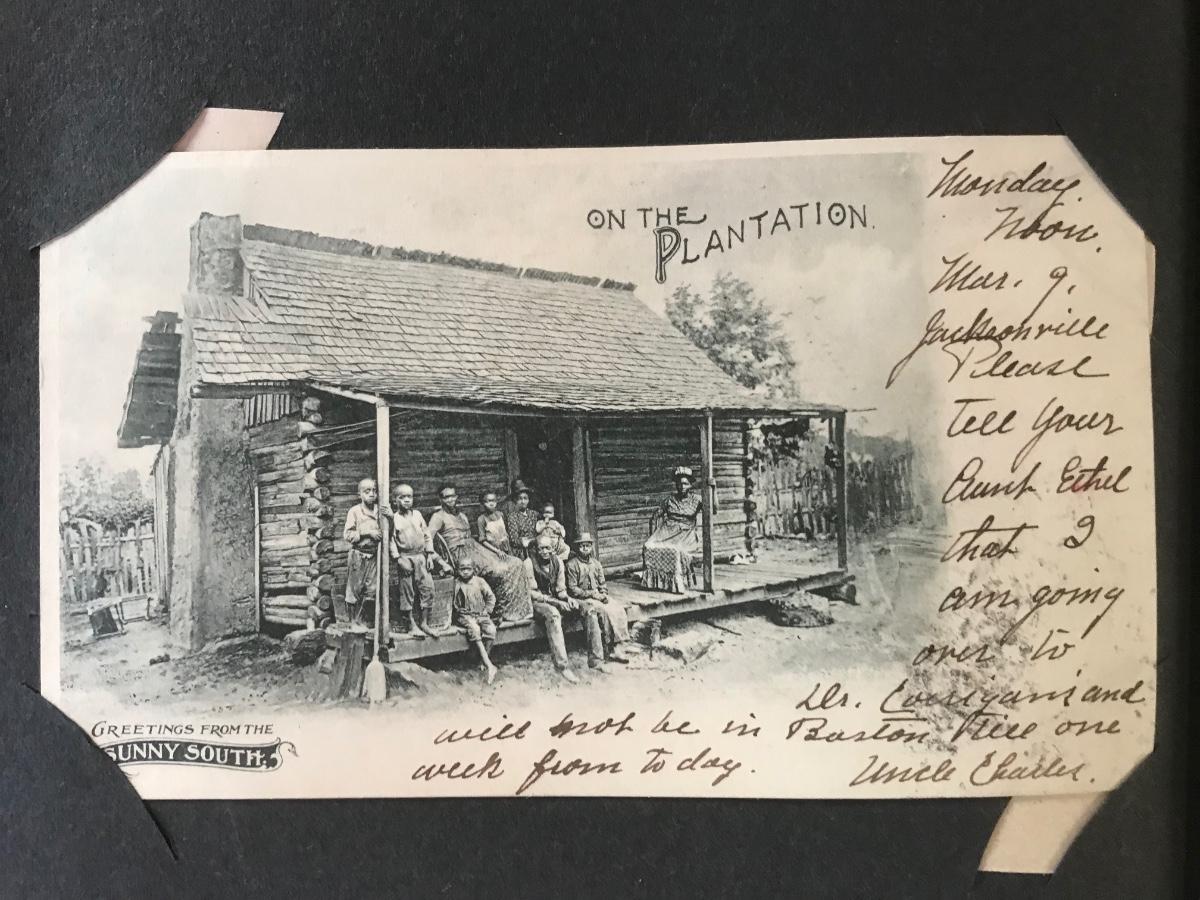 ON THE
PLANTATION.
Monday.
Noon.
Mar. 9.
Jacksonville
Please
tell your
Aunt Ethel
that I
am going
over to
Dr. Corrigan's and
will not be in Boston till one
week from today. Uncle Charles.
GREETINGS FROM THE
SUNNY SOUTH.